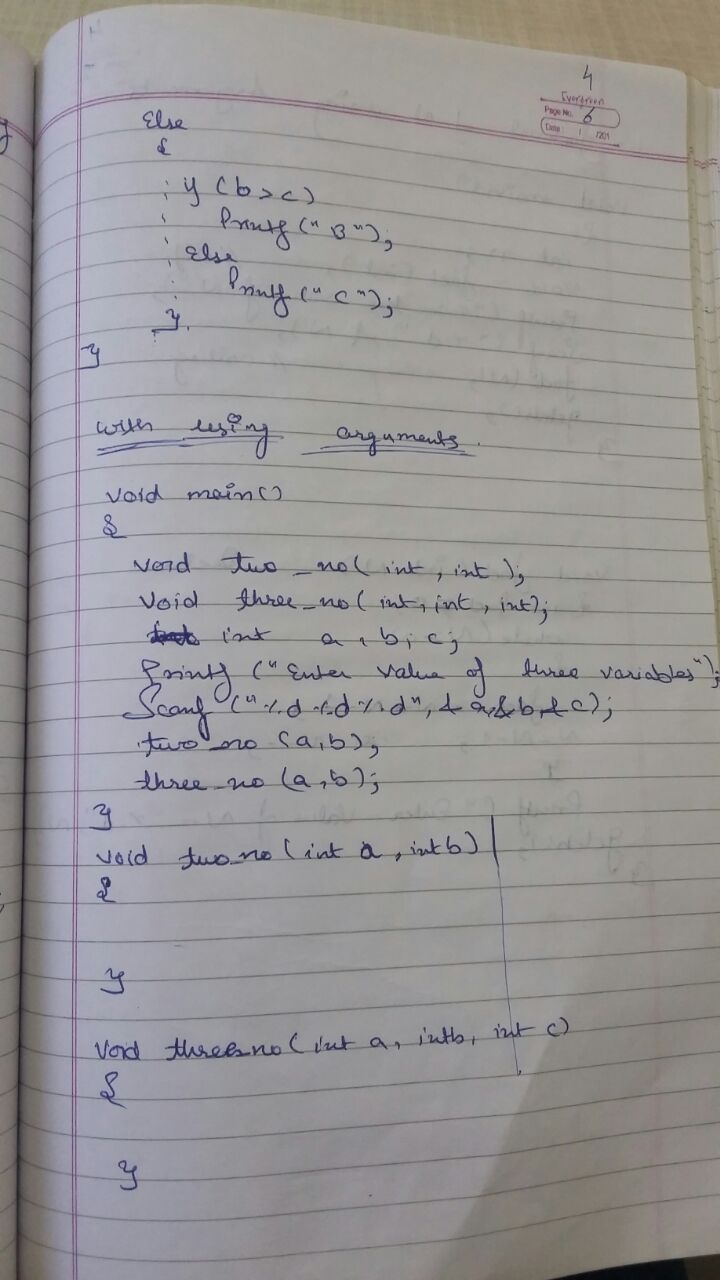 4
Evergreen
Page No. 6
Date: / /201
Else
{
if (b>c)
Printf("B");
Else
Printf("C");
}
}
with using arguments.
void main()
{
void two_no( int, int );
Void three_no( int, int, int);
int a, b, c;
Printf ("Enter value of three variables");
Scanf ("%d %d %d", &a,&b,&c);
two_no (a,b);
three_no (a,b);
}
void two_no(int a, int b)
{
}
void three_no( int a, intb, int c)
{
}